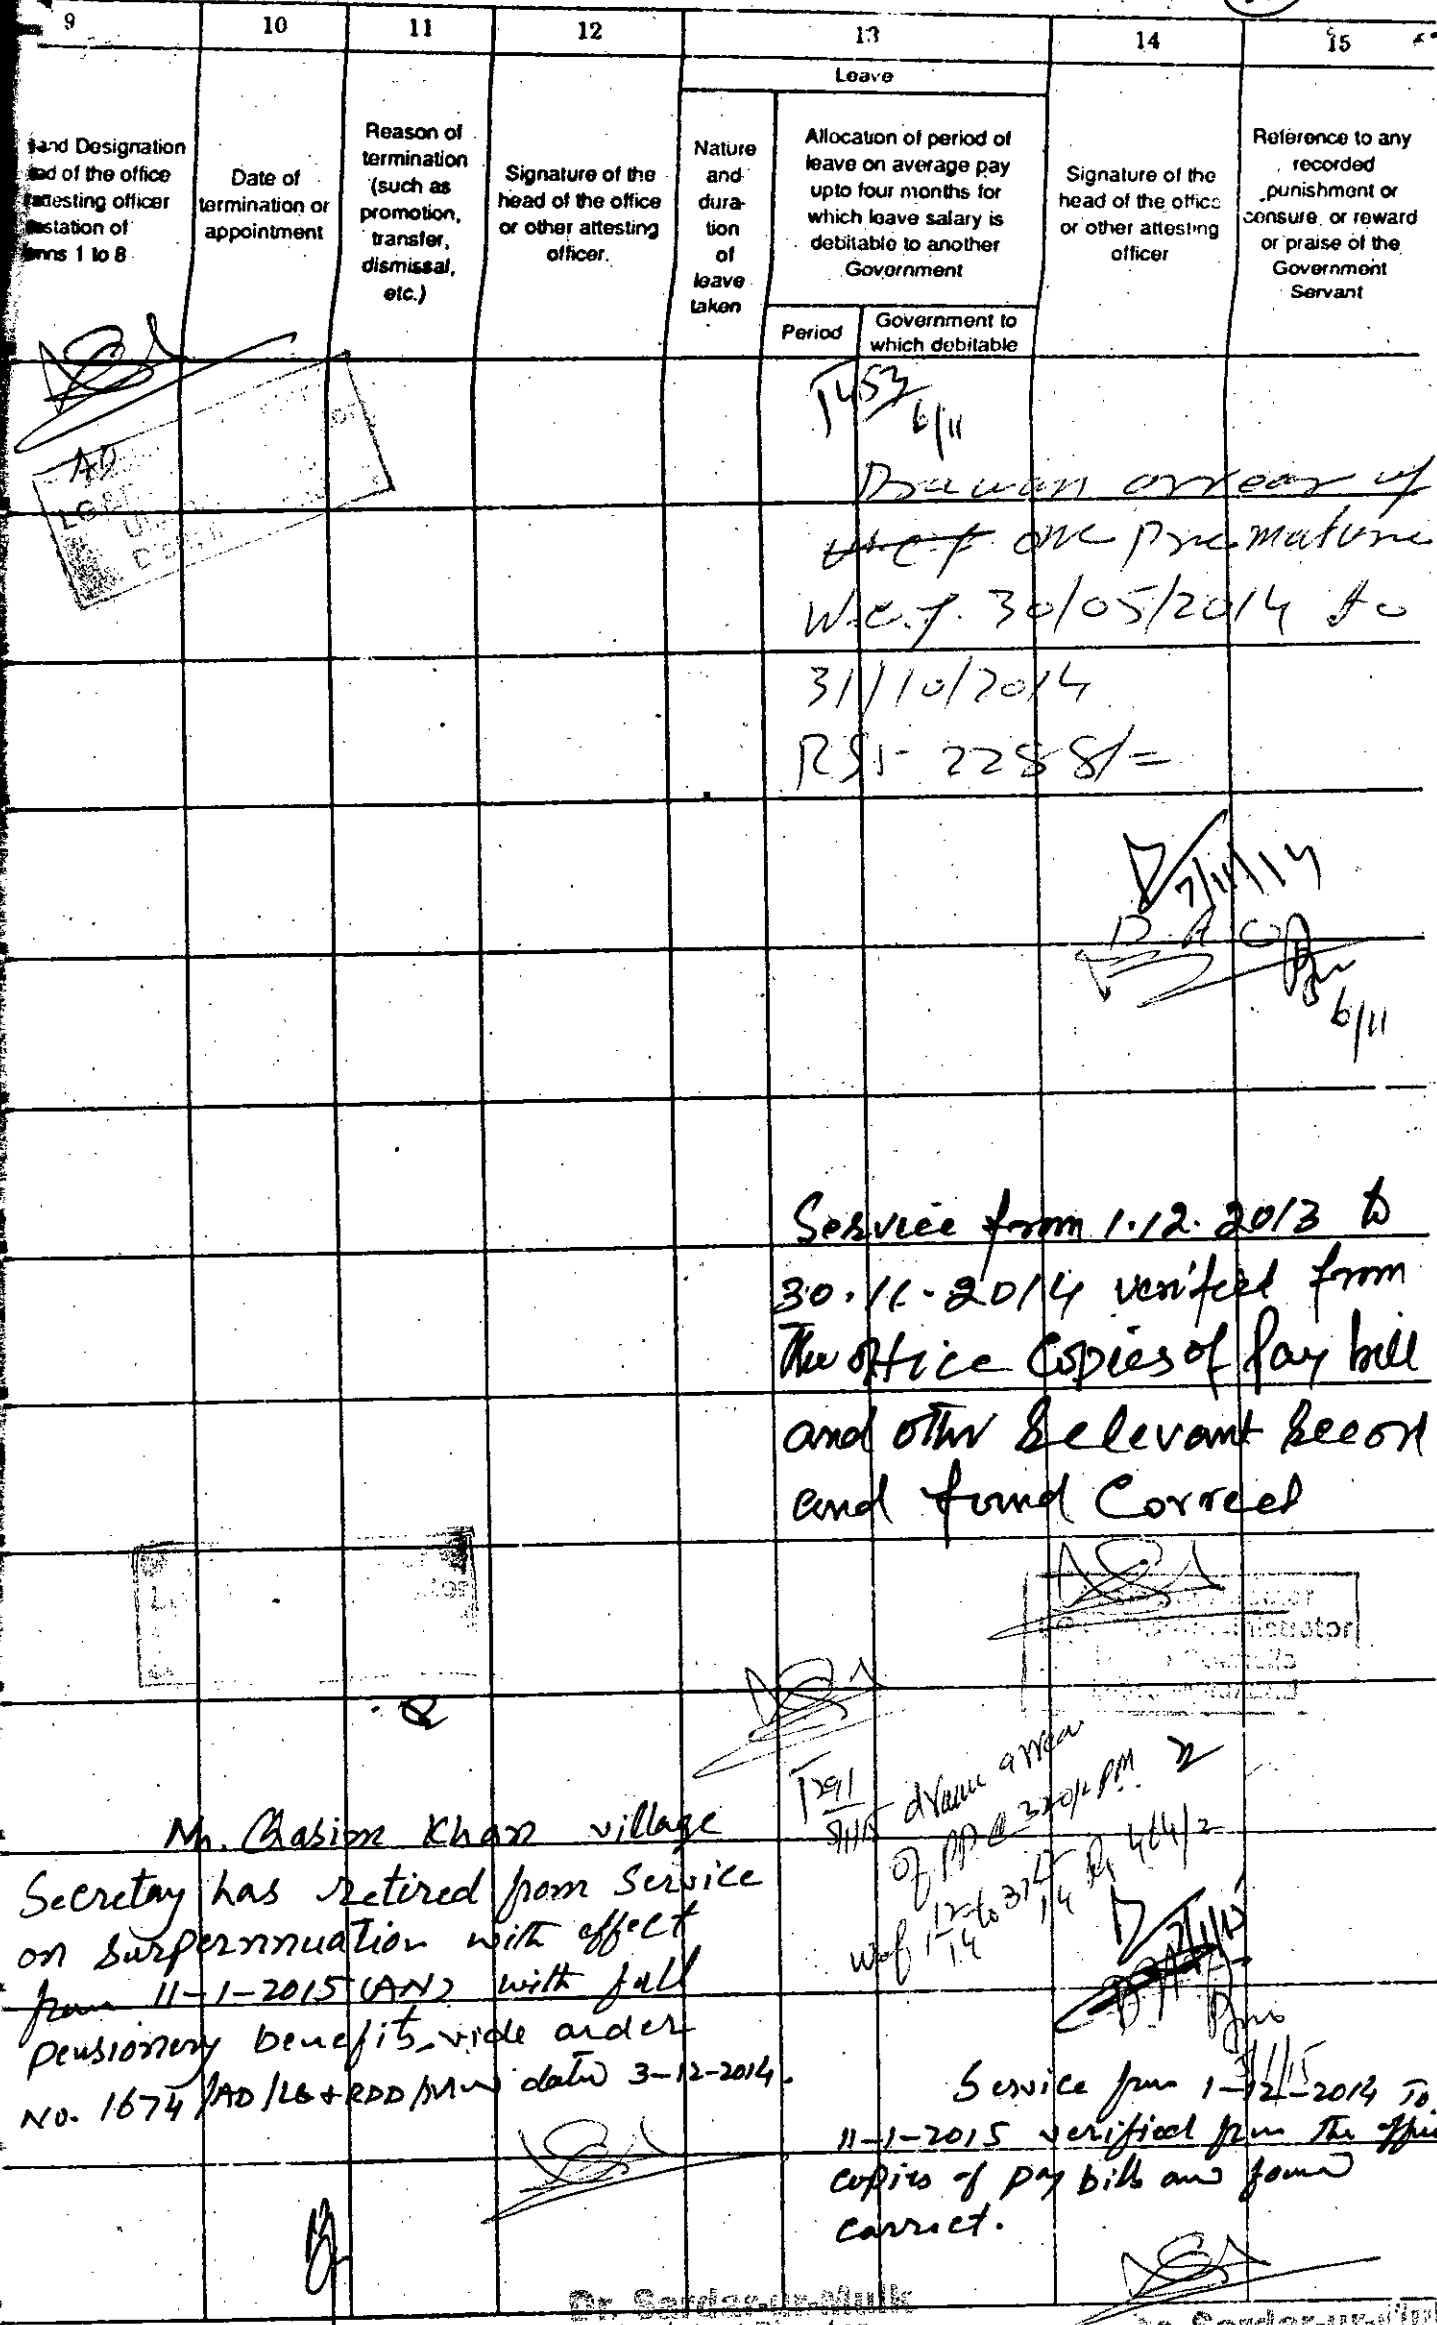 9 10 11 12 13 14 15
Leave
and Designation
of the office
attesting officer
of
1 to 8
Date of
termination or
appointment
Reason of
termination
(such as
promotion,
transfer,
dismissal,
etc.)
Signature of the
head of the office
or other attesting
officer.
Nature
and
dura-
tion
of
leave
taken
Allocation of period of
leave on average pay
upto four months for
which leave salary is
debitable to another
Government
Period
Government to
which debitable
Signature of the
head of the office
or other attesting
officer
Reference to any
recorded
punishment or
censure, or reward
or praise of the
Government
Servant
AD
LG&
1453
6/11
Drawan arrear of
one Pre mature
W.e.f. 30/05/2014 to
31/10/2014
RS:- 2288/=
7/11/14
D.A.O
6/11
Service from 1.12.2013 to
30.11.2014 verified from
The office Copies of Pay bill
and other Relevant Recor
and found Correct
Mr. Qasim Khan village
Secretay has retired from Service
on Surpernnuation with effect
from 11-1-2015 (AN) with full
pensionery benefits vide order
No. 1674/AD/LG+RDD/ dated 3-12-2014.
1291
drawn arrea
of PP @ 320/= PM
wef 1-12-14 to
Service from 1-12-2014 To
11-1-2015 verified from The offic
copies of pay bills and found
carrect.
Dr. Sardar-ur-Mulk